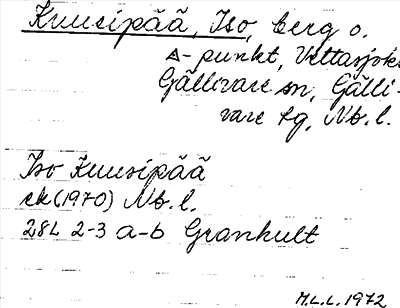 Kuusipää, Iso, berg o.
△-punkt, Vettasjoki
Gällivare sn, Gälli-
vare tg, Nb. l.
Iso Kuusipää
ek (1970) Nb. l.
28L 2-3 a-b Grankult
M.L.L. 1972